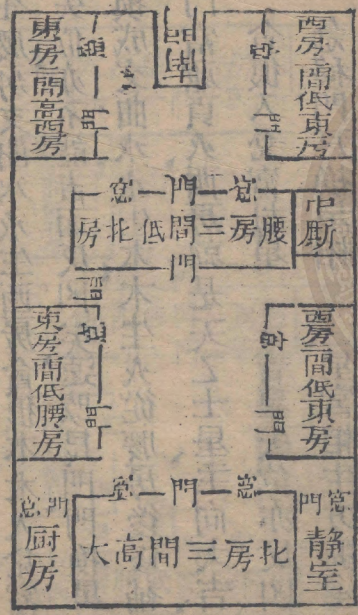 門
西房二間低東房
窗
門
東房二間高西房
窗
門
窗門窗
腰房三間低北房
中厠
門
門
西房二間低東房
窗
門
東房二間低腰房
窗
門
窗門窗
北房三間高大
窗門
靜室
門窗
厨房